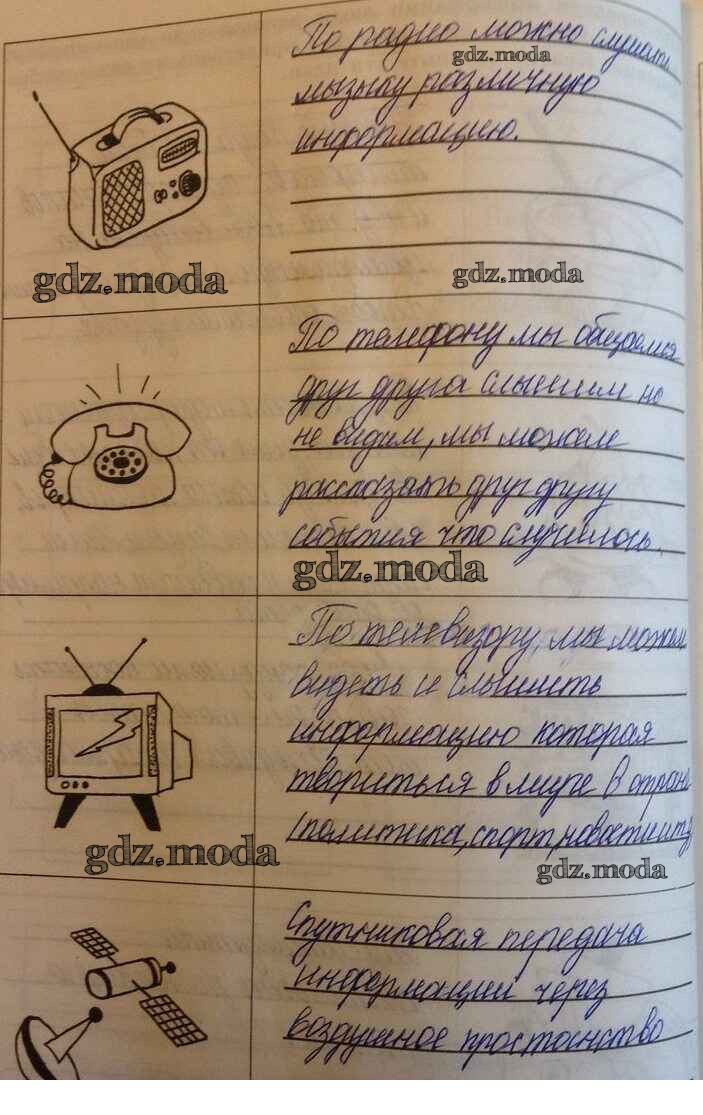 По радио можно слушать
gdz.moda
мызыку различную
информацию.
gdz.moda
gdz.moda
По телефону мы общаемся
друг друга слышим но
не видим, мы можем
рассказать друг другу
события что случилось.
gdz.moda
По телевизору, мы можем
видеть и слышить
информацию которая
твориться в мире в стране
(политика, спорт, новости итд
gdz.moda
gdz.moda
Спутниковая передача
информации через
воздушное простоенство